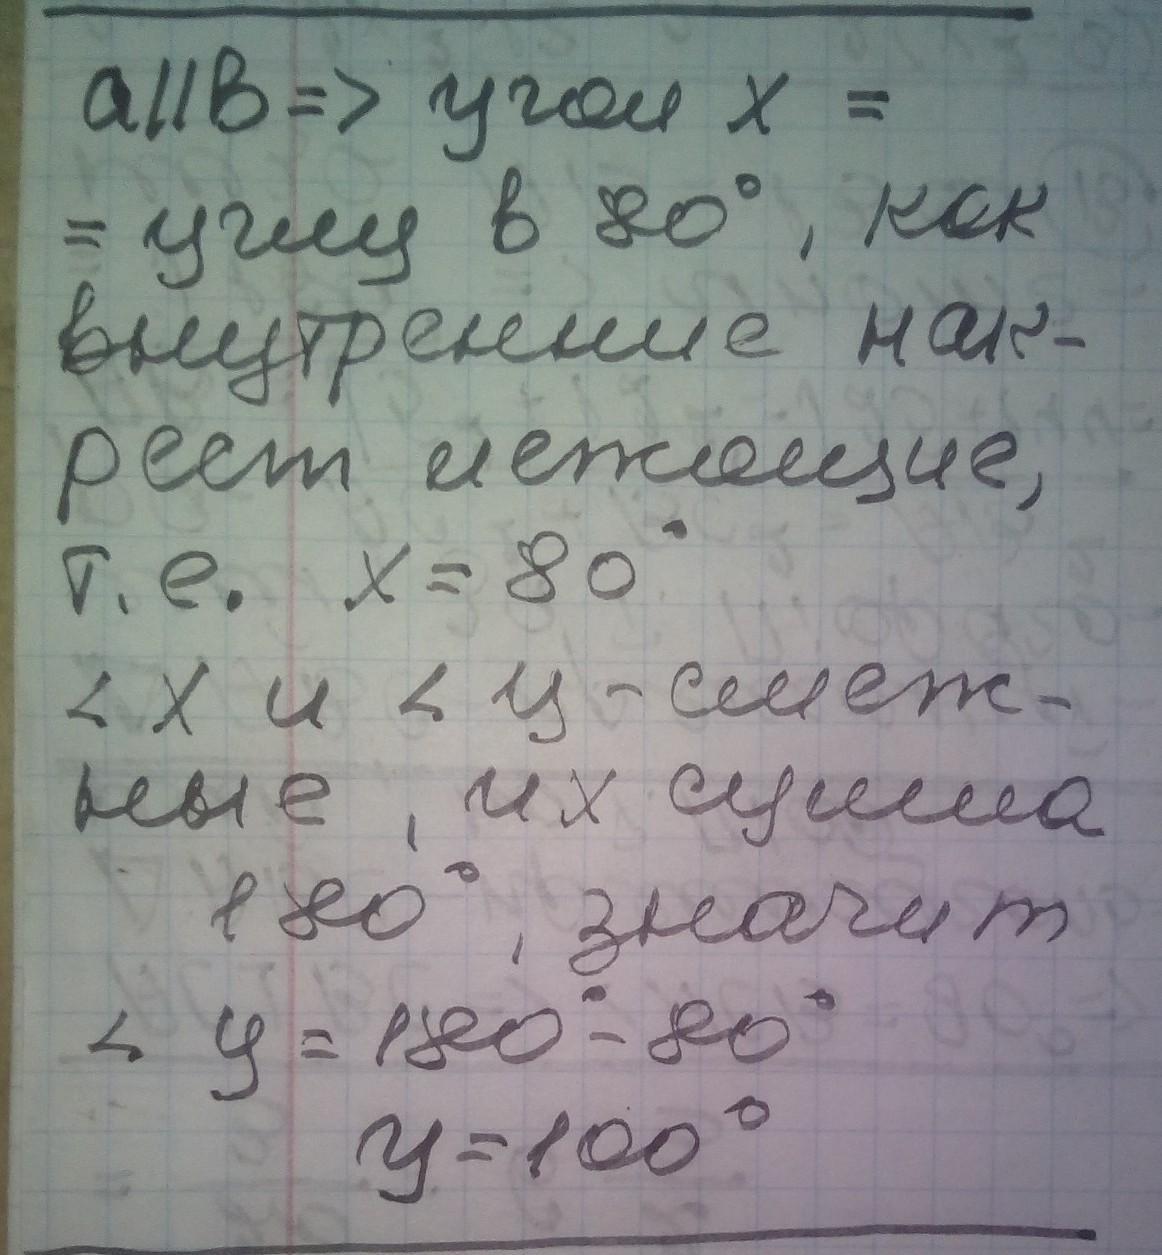 a||в => угол x =
= углу в 80°, как
внутренние нак-
рест лежащие,
т.е. x = 80°
∠x и ∠y - смеж-
ные, их сумма
180°, значит
∠y = 180° - 80°
y = 100°